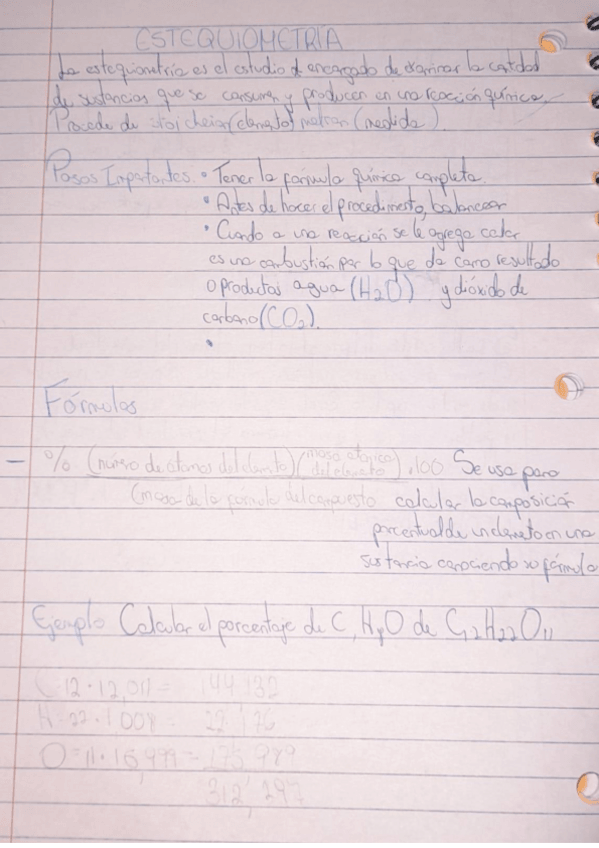 ESTEQUIOMETRÍA
La estequiometría es el estudio encargado de examinar la cantidad
de sustancias que se consumen y producen en una reacción química.
Procede de stoicheion (elemento) metron (medida).
Pasos Importantes. • Tener la fórmula química completa.
• Antes de hacer el procedimiento, balancear
• Cuando a una reacción se le agrega calor
es una combustión por lo que da como resultado
o productos agua (H₂O) y dióxido de
carbono (CO₂).
•
Fórmulas
– % (número de atomos del elemento)(masa atómica del elemento) .100 Se usa para
(masa de la fórmula del compuesto calcular la composición
porcentual de un elemento en una
sustancia conociendo su fórmula
Ejemplo Calcular el porcentaje de C, H y O de C₁₂H₂₂O₁₁
C=12·12,011= 144,132
H=22·1,008= 22,176
O=11·15,999=175,989